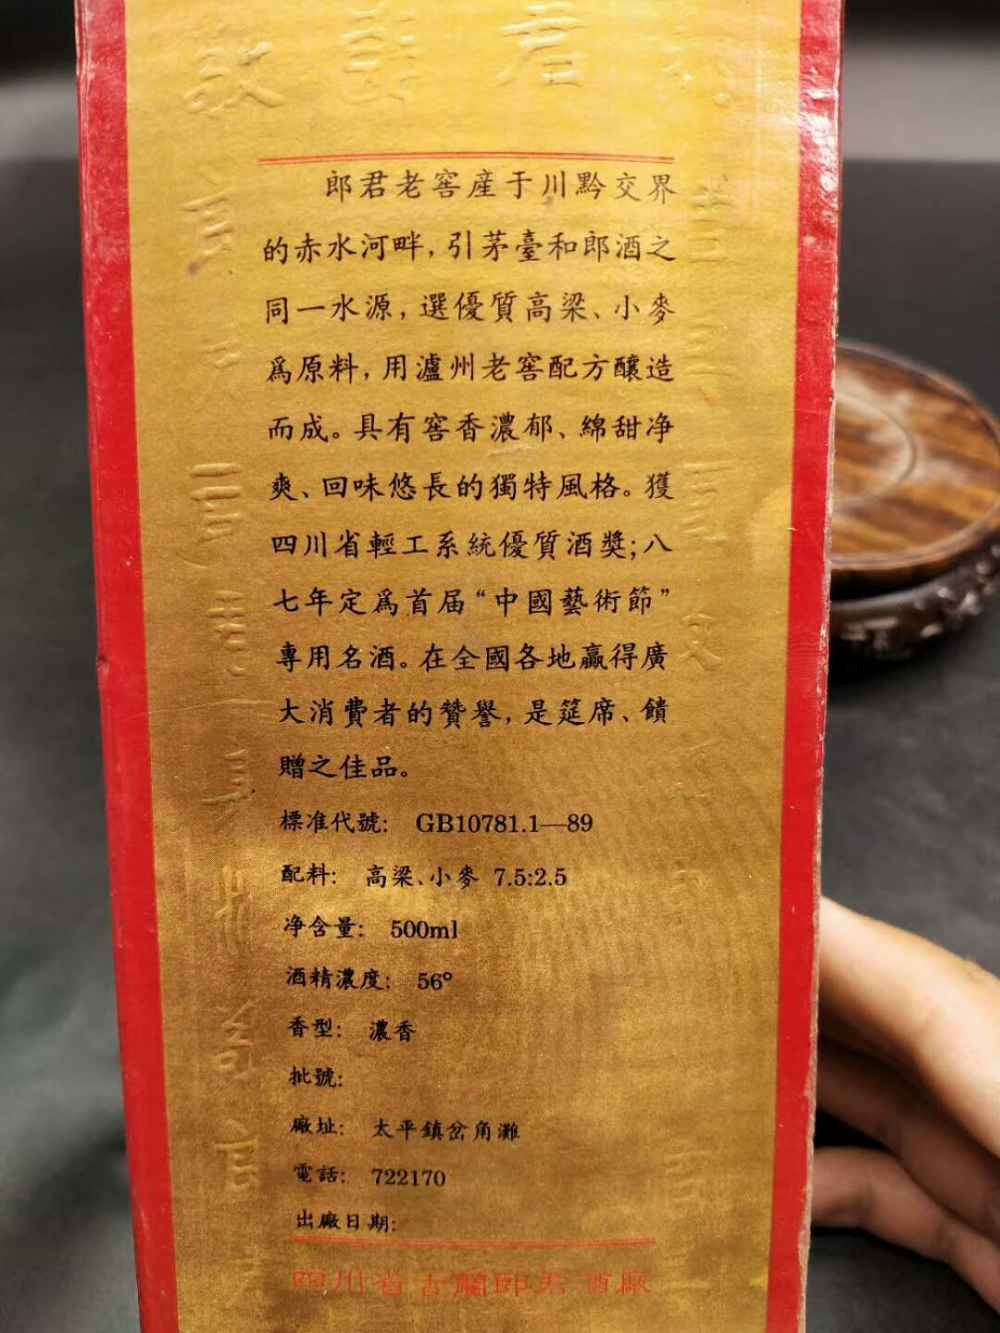 郎君老窖産于川黔交界
的赤水河畔，引茅臺和郎酒之
同一水源，選優質高梁、小麥
爲原料，用瀘州老窖配方釀造
而成。具有窖香濃郁、綿甜净
爽、回味悠長的獨特風格。獲
四川省輕工系統優質酒獎；八
七年定爲首届“中國藝術節”
專用名酒。在全國各地贏得廣
大消費者的贊譽，是筵席、饋
贈之佳品。
標准代號： GB10781.1—89
配料： 高梁、小麥 7.5:2.5
净含量： 500ml
酒精濃度： 56°
香型： 濃香
批號：
廠址： 太平鎮岔角灘
電話： 722170
出廠日期：
四川省古藺郎君酒廠